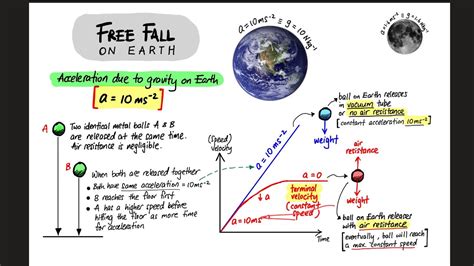 FREE FALL
ON EARTH
a = 10 ms⁻² ≡ g = 10 Nkg⁻¹
Acceleration due to gravity on Earth
a = 10 ms⁻²
A
Two identical metal balls A & B
are released at the same time.
Air resistance is negligible.
B
When both are released together
• Both have same acceleration = 10 ms⁻²
• B reaches the floor first
• A has a higher speed before
hitting the floor as more time
for acceleration
(speed)
velocity
a = 10 ms⁻²
ball on Earth releases
in vacuum tube
or no air resistance
[constant acceleration 10 ms⁻²]
weight
air
resistance
a = 0
terminal
velocity
(constant
speed)
a = 10 ms⁻²
weight
ball on Earth releases
with air resistance
[eventually, ball will reach
a max. constant speed]
Time